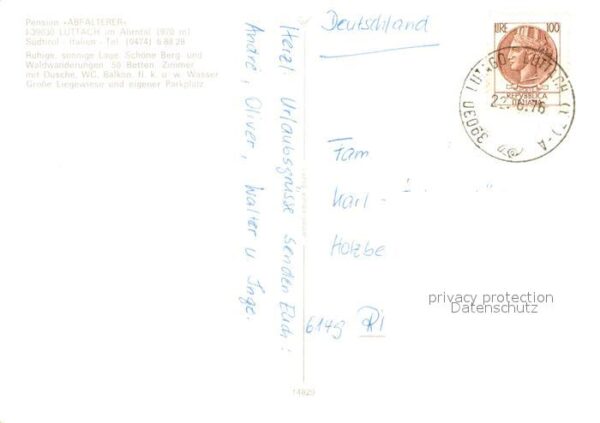 Pension «ABFALTERER»
I-39030 LUTTACH im Ahrntal (970 m)
Südtirol - Italien - Tel. (0474) 6 88 28
Ruhige, sonnige Lage. Schöne Berg- und
Waldwanderungen. 50 Betten. Zimmer
mit Dusche, WC, Balkon, fl. k. u. w. Wasser
Große Liegewiese und eigener Parkplatz
Herzl. Urlaubsgrüsse senden Euch:
André, Oliver, Walter u. Inge.
Deutschland
LIRE 100
REPVBBLICA
ITALIANA
39030 LUTAGO - LUTTACH
22.6.76
Fam
Karl-
Holzbe
6149 Ri
privacy protection
Datenschutz
14829